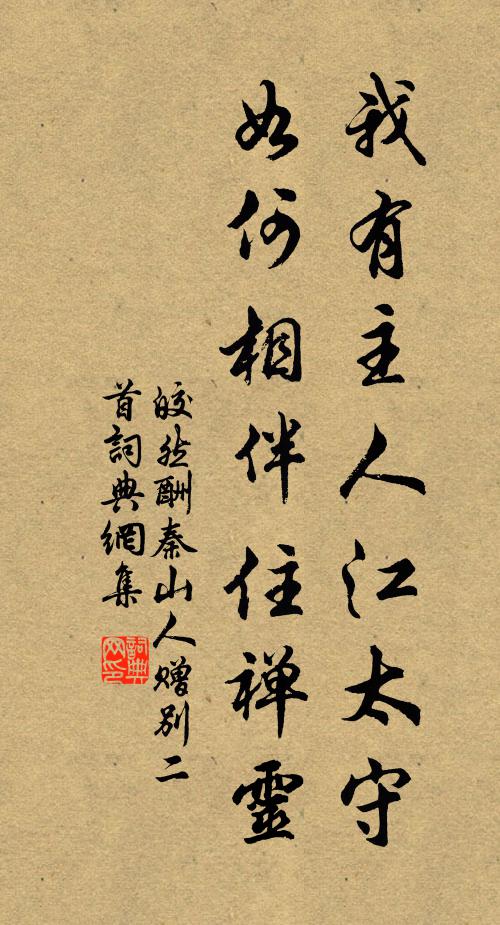 我有主人江太守
如何相伴住禅靈
皎然酬秦山人赠别二
首詞典網集
詞典
网印